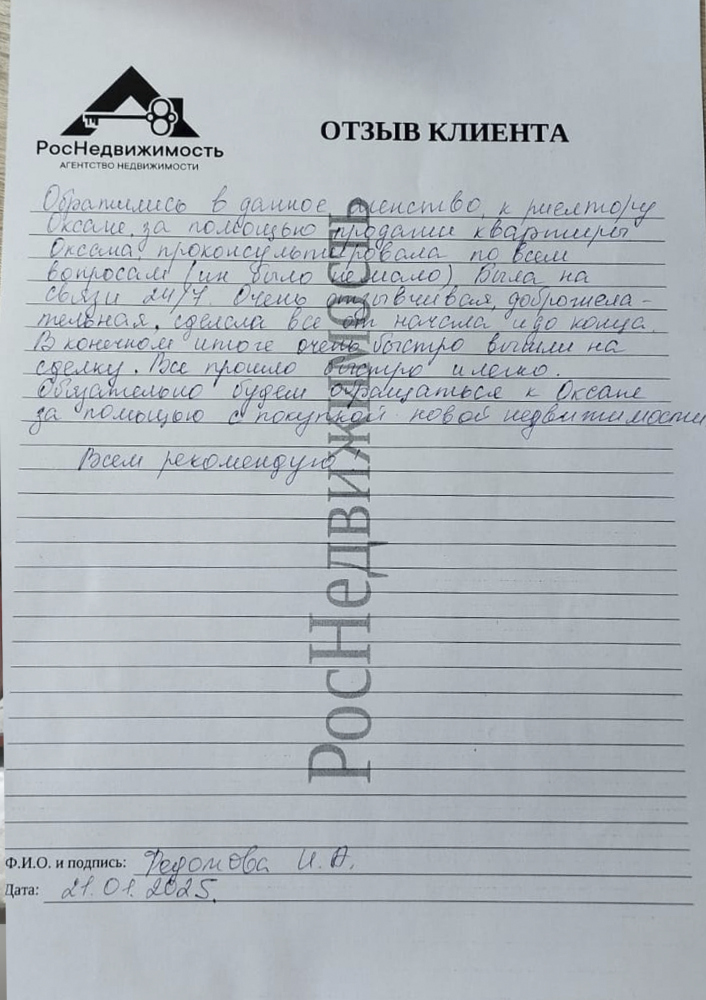 РосНедвижимость
АГЕНТСТВО НЕДВИЖИМОСТИ
ОТЗЫВ КЛИЕНТА
Обратились в данное агенство, к риелтору
Оксане, за помощью продажи квартиры
Оксана, проконсультировала по всем
вопросам (их было не мало) Была на
связи 24/7. Очень отзывчивая, доброжела-
тельная, сделала все от начала и до конца.
В конечном итоге очень быстро вышли на
сделку. Все прошло быстро и легко.
Обязательно будем обращаться к Оксане
за помощью с покупкой новой недвижимости
Всем рекомендую
РосНедвижимость
Ф.И.О. и подпись: Федотова И. А.
Дата: 21.01.2025.